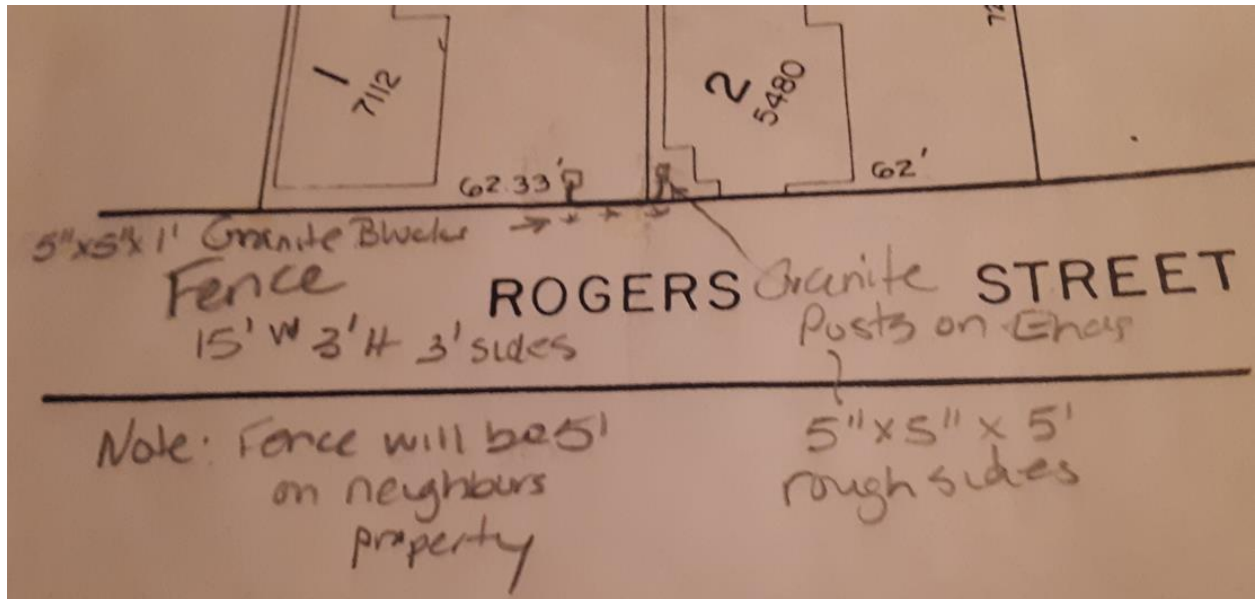 1
7112
2
5480
72
62.33'
62'
5"x5"x1' Granite Blocks
Fence
15' W 3' H 3' sides
ROGERS STREET
Granite
Posts on Ends
5"x5"x5'
rough sides
Note: Fence will be 5'
on neighburs
property